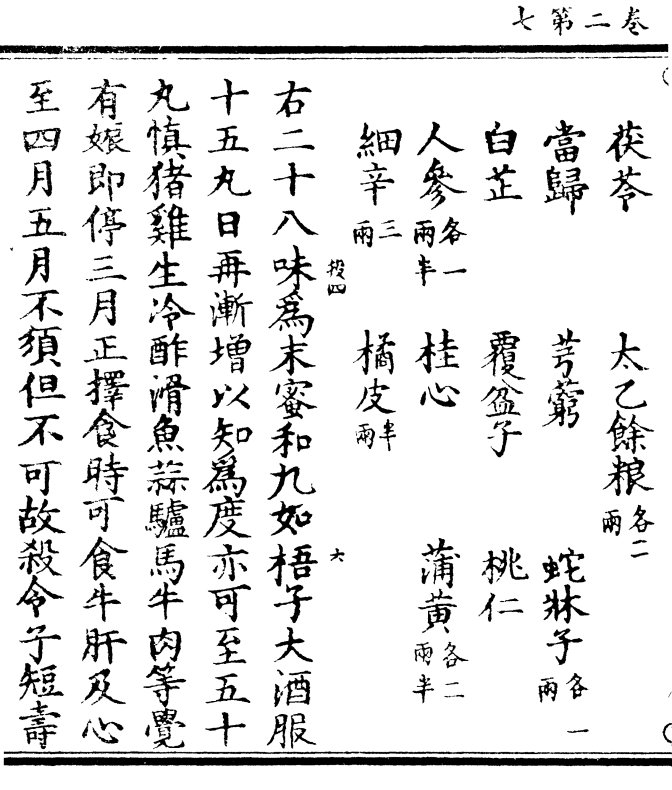 七第二卷
茯苓 太乙餘粮各二兩
當歸 芎藭 蛇牀子各一兩
白芷 覆盆子 桃仁
人參各一兩半 桂心 蒲黃各二兩半
細辛三兩 橘皮半兩
右二十八味爲末蜜和丸如梧子大酒服
十五丸日再漸增以知爲度亦可至五十
丸慎猪雞生冷酢滑魚蒜驢馬牛肉等覺
有娠即停三月正擇食時可食牛肝及心
至四月五月不須但不可故殺令子短壽